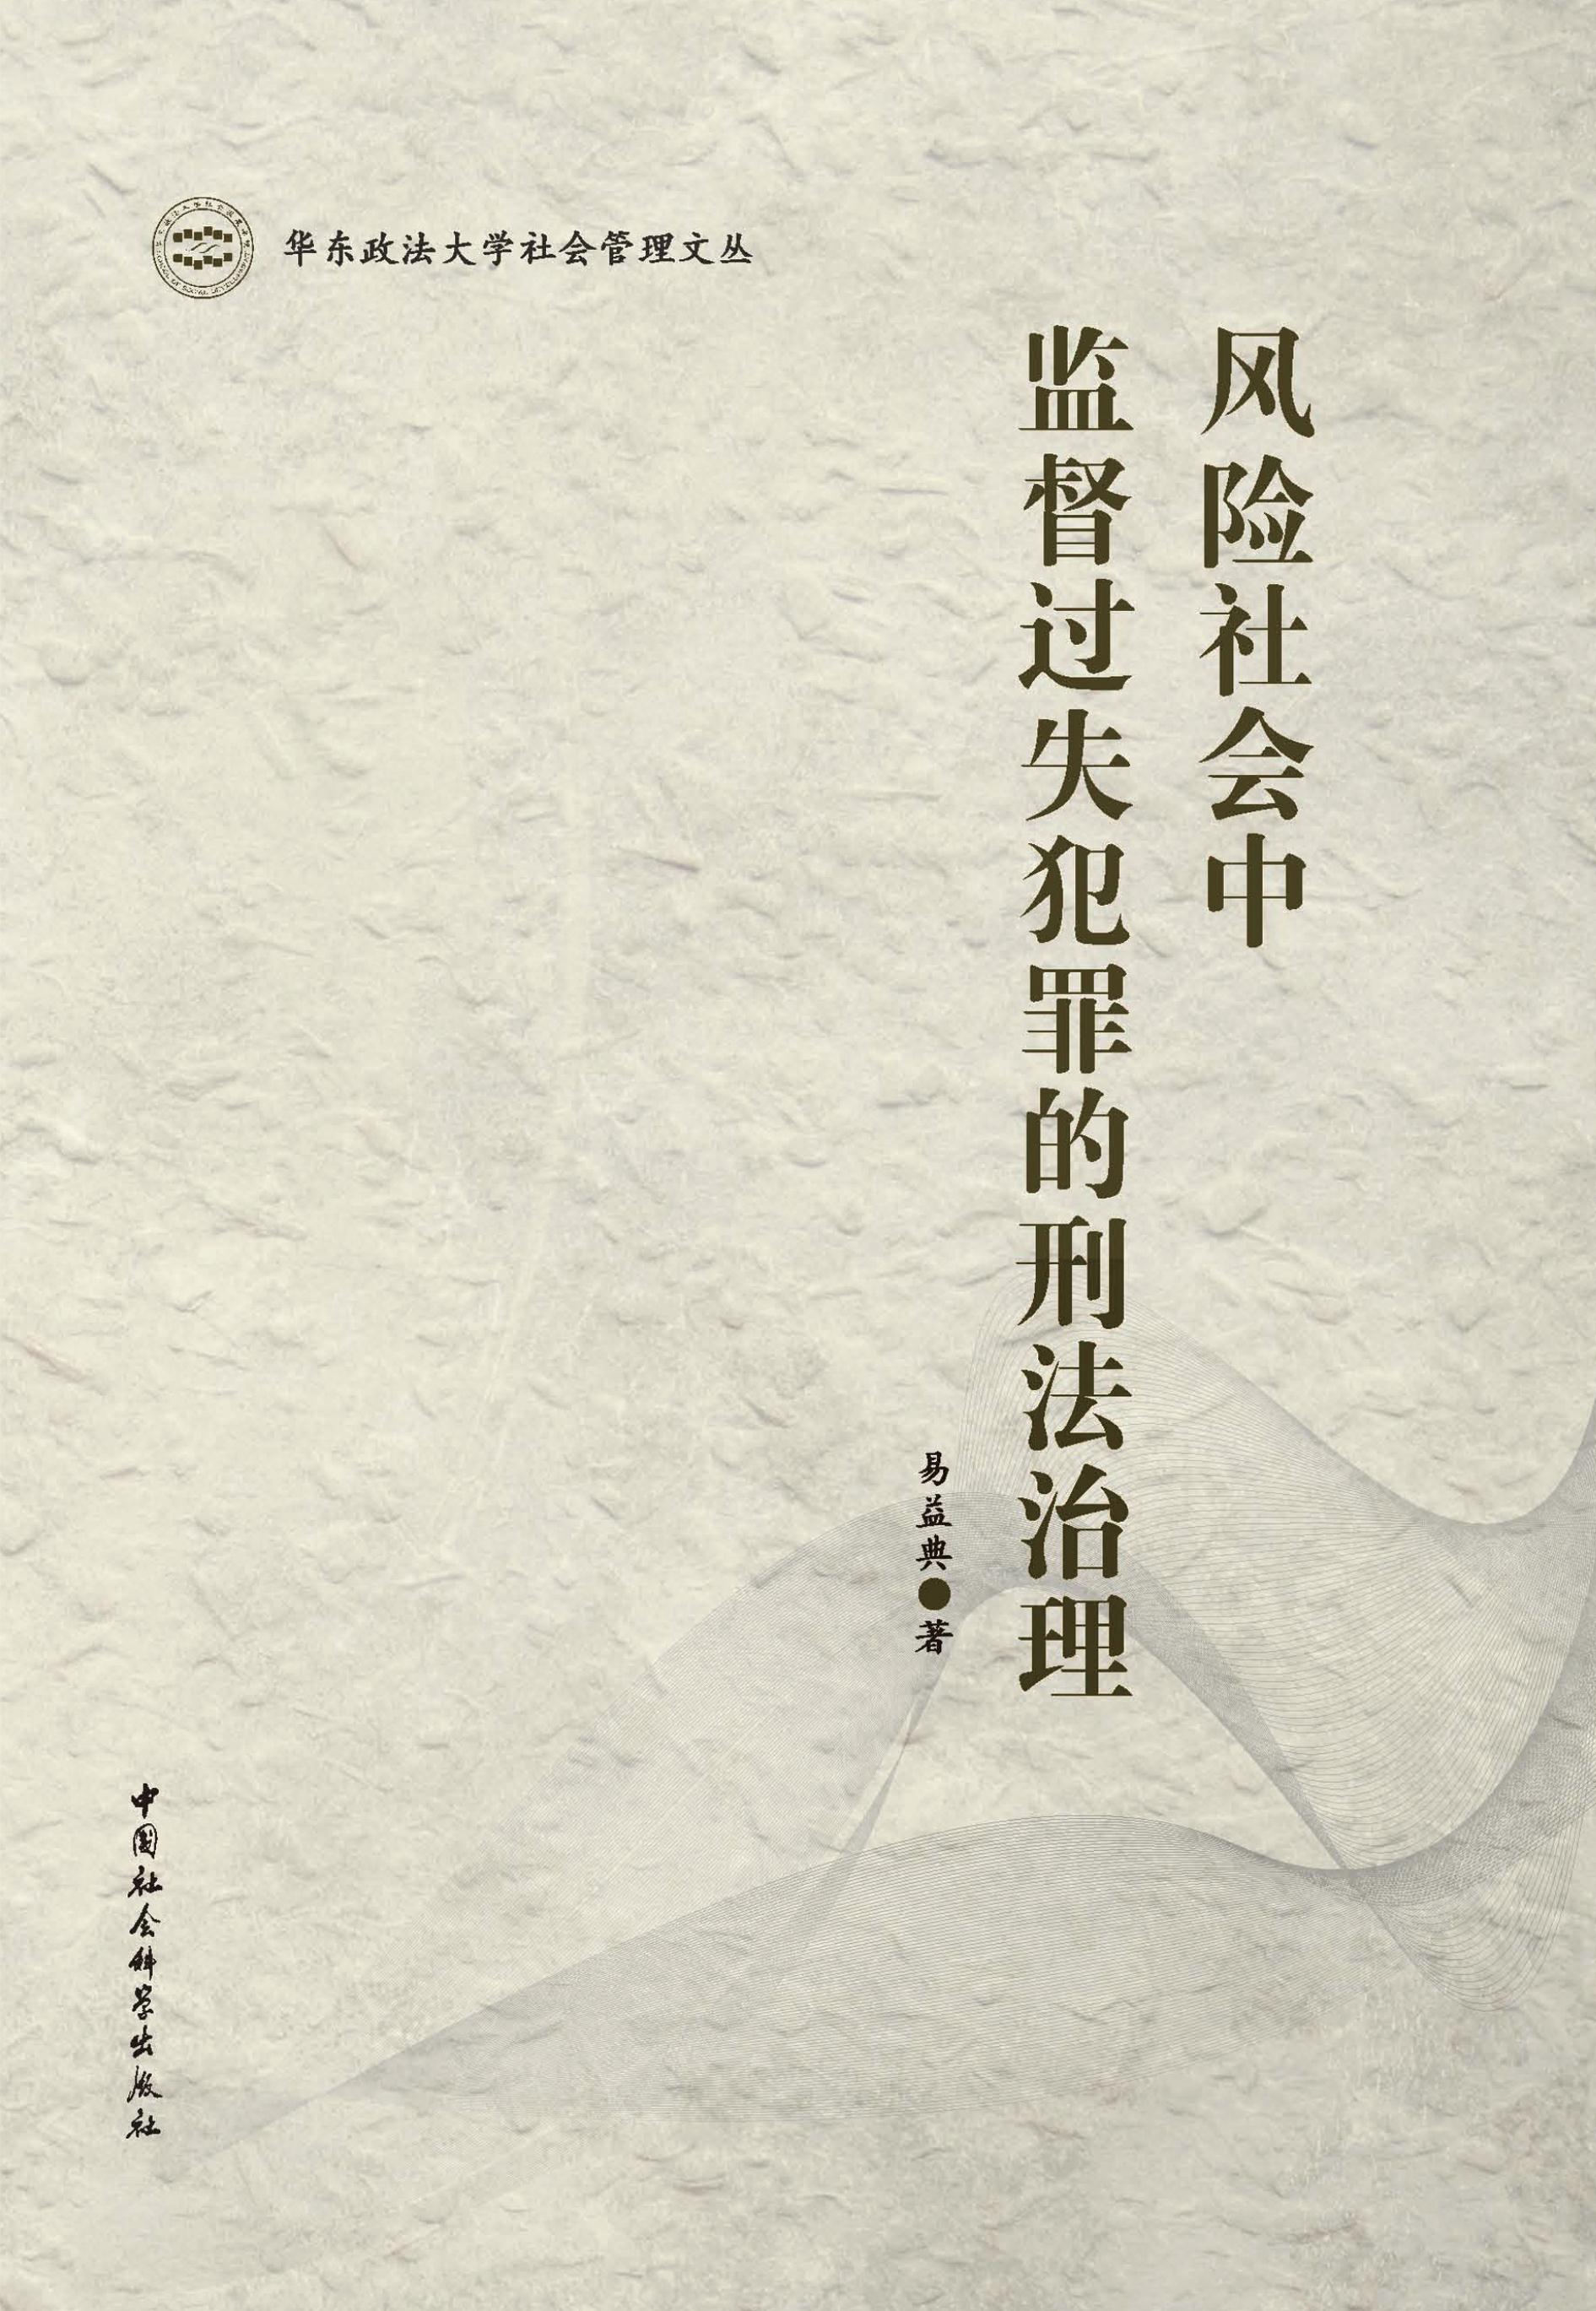 华东政法大学社会管理文丛
风险社会中
监督过失犯罪的刑法治理
易益典●著
中国社会科学出版社